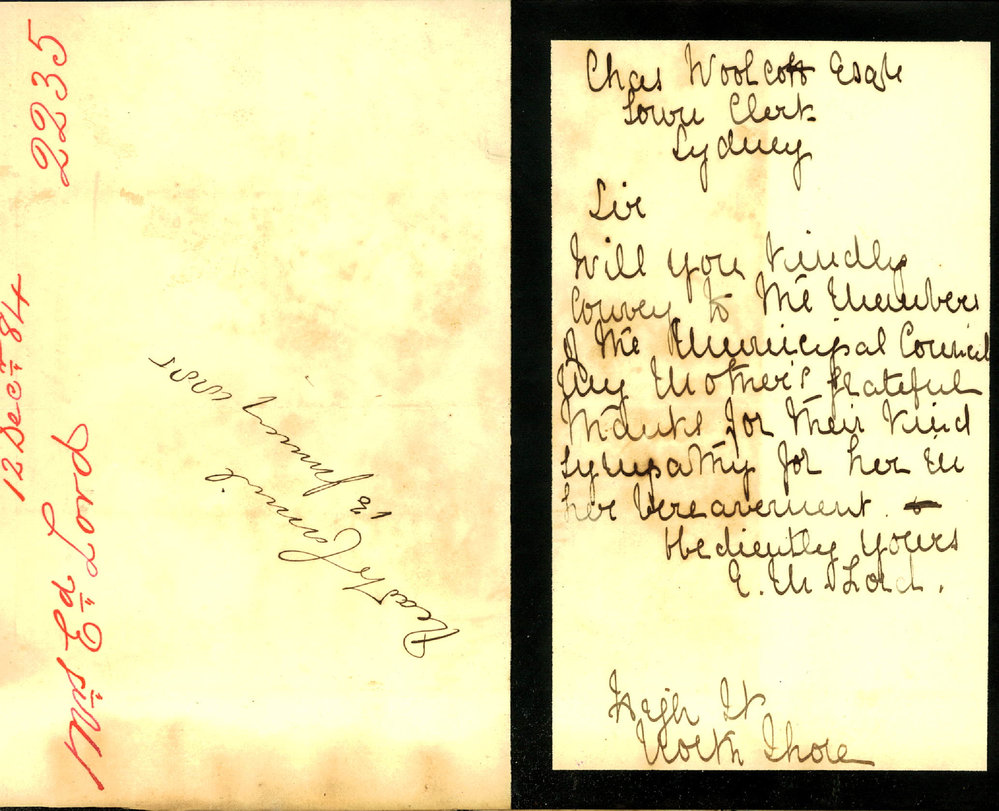 2235
12 Decr. 84
Mrs. Ed. Lord
Read to Council
12 January 1885
Chas Woolcott Esqre
Town Clerk
Sydney
Sir
Will you kindly
Convey to the Members
of the Municipal Council
My Mother's grateful
thanks for their kind
sympathy for her in
her bereavement.
Obediently yours
E. M. Lord.
High St
North Shore